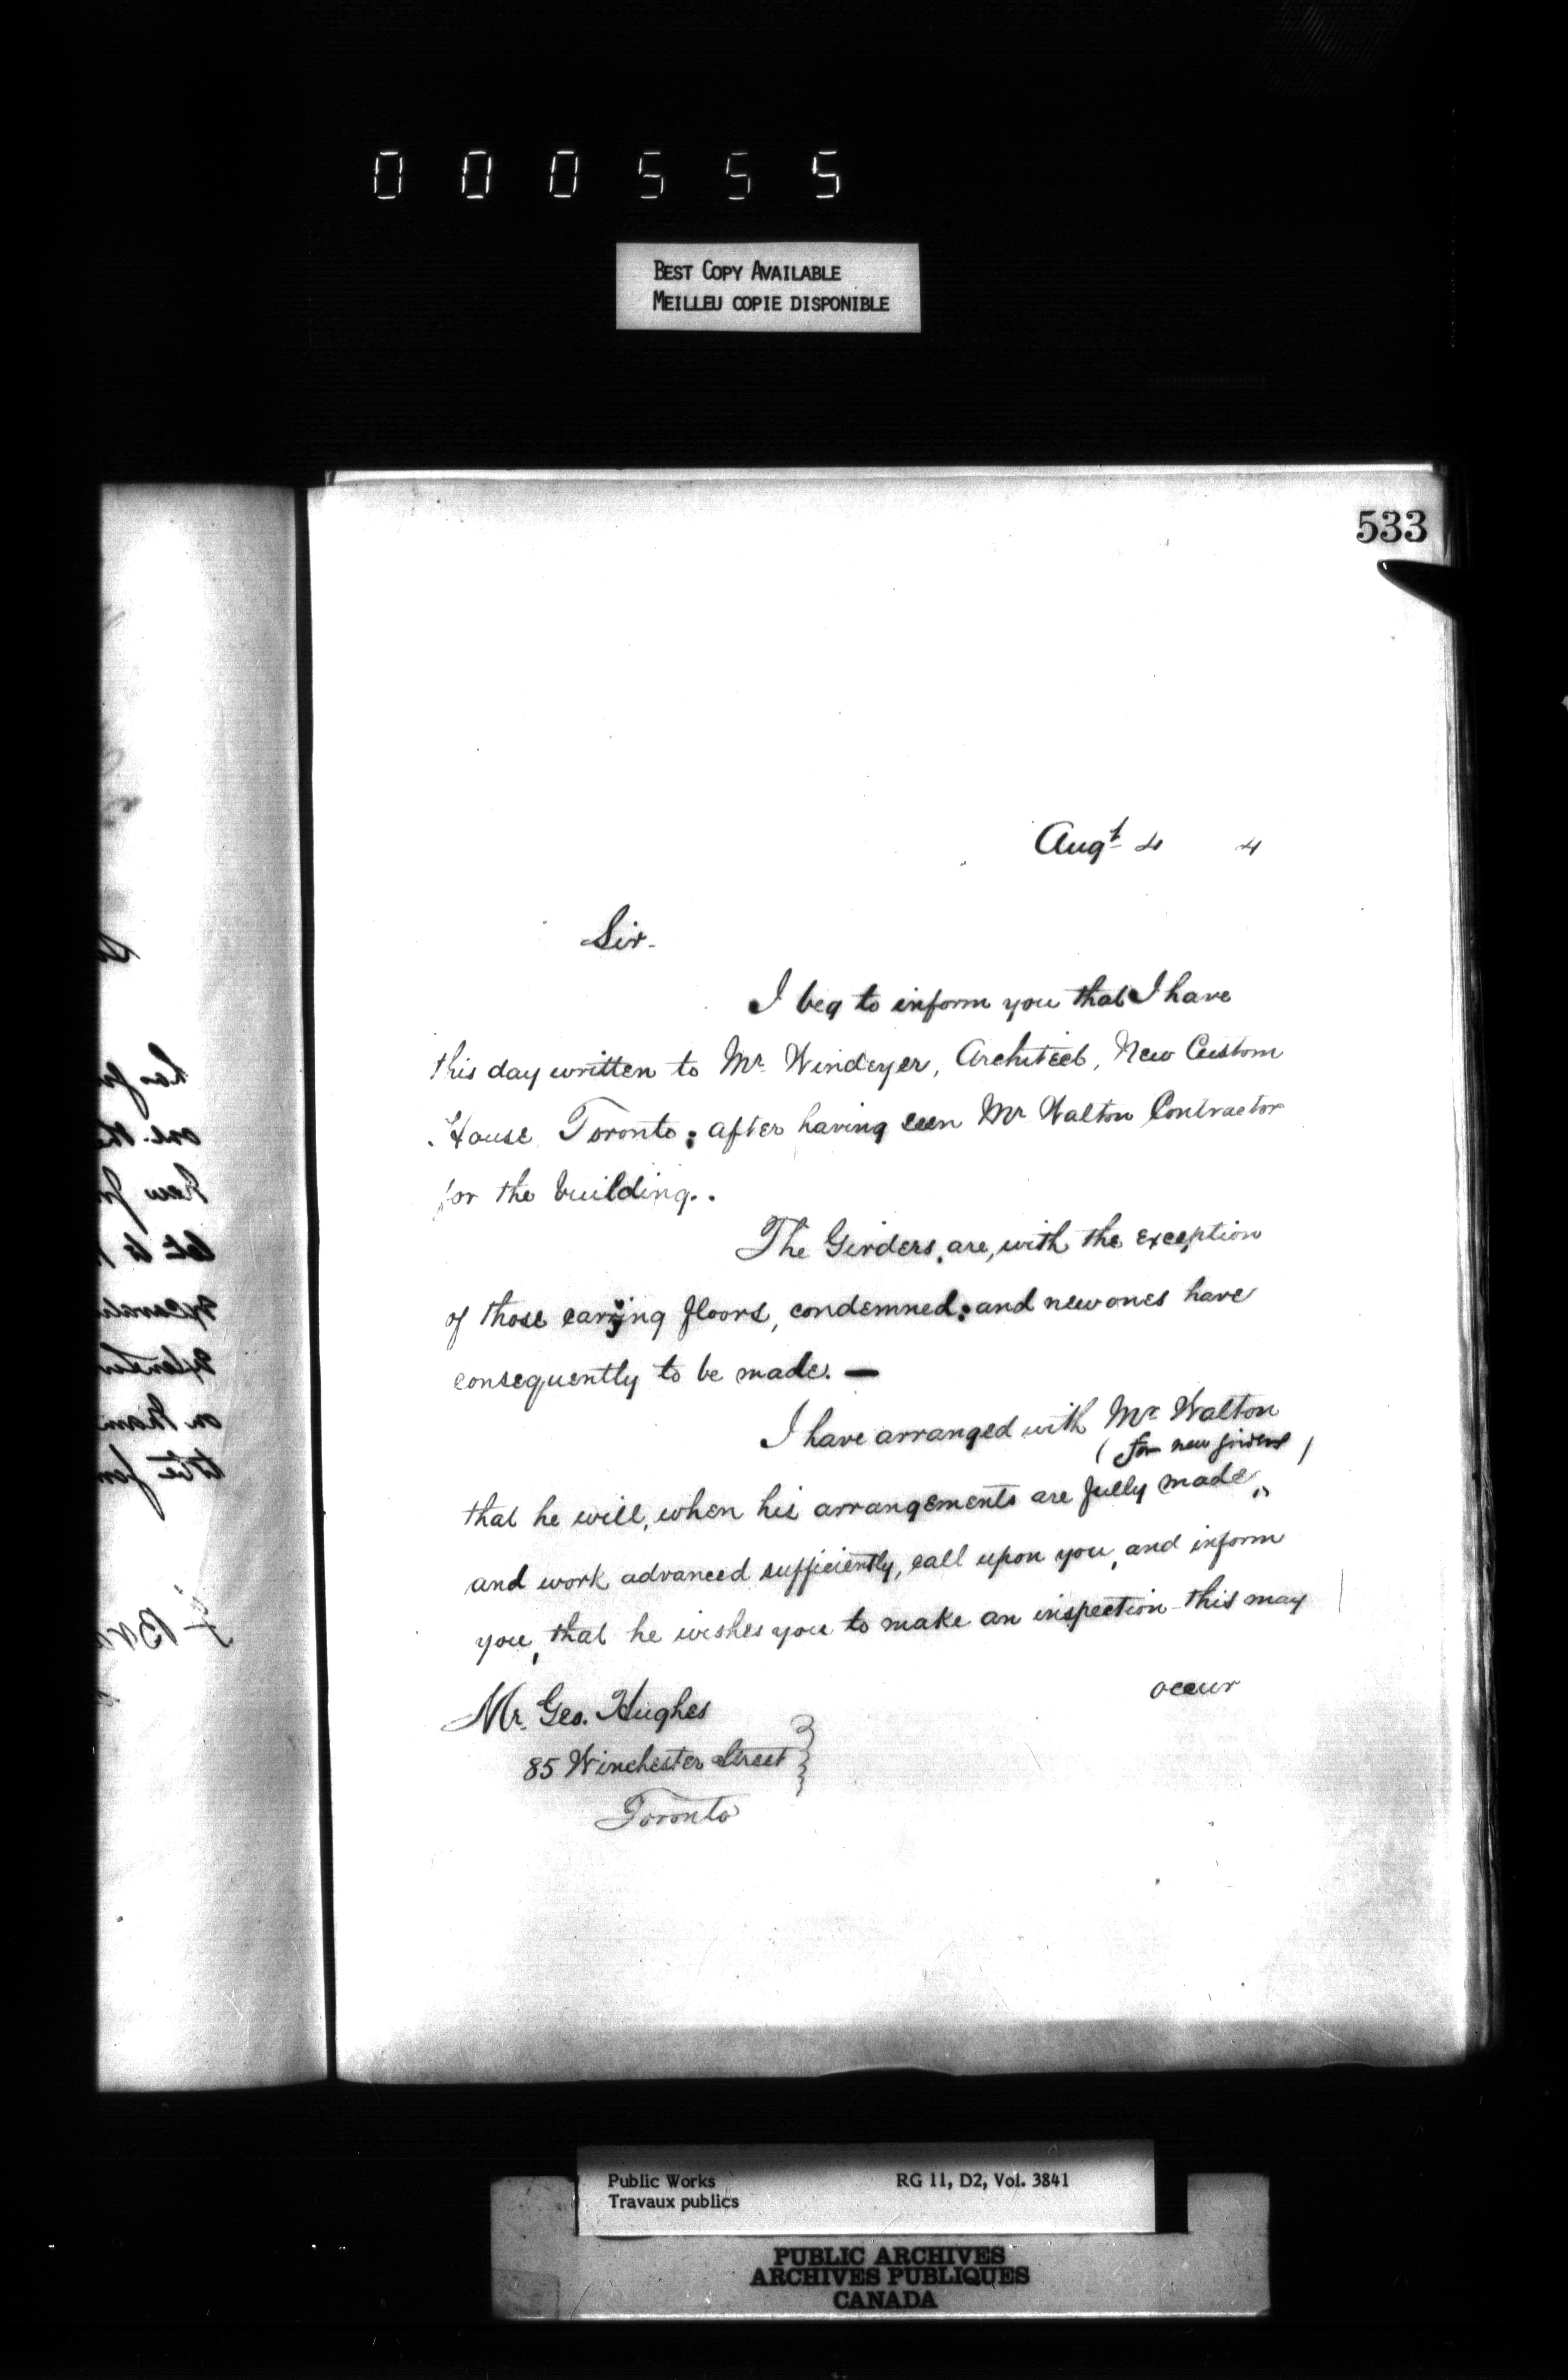 000555
BEST COPY AVAILABLE
MEILLEU COPIE DISPONIBLE
533
Augt 4 4
Sir.
I beg to inform you that I have
this day written to Mr Windeyer, Architect, New Custom
House Toronto; after having seen Mr Walton Contractor
for the building.
The Girders, are, with the exception
of those carrying floors, condemned; and new ones have
consequently to be made. —
I have arranged with Mr Walton
(for new girders)
that he will, when his arrangements are fully made,
and work advanced sufficiently, call upon you, and inform
you, that he wishes you to make an inspection - this may
occur
Mr. Geo. Hughes
85 Winchester Street
Toronto
Public Works RG 11, D2, Vol. 3841
Travaux publics
PUBLIC ARCHIVES
ARCHIVES PUBLIQUES
CANADA